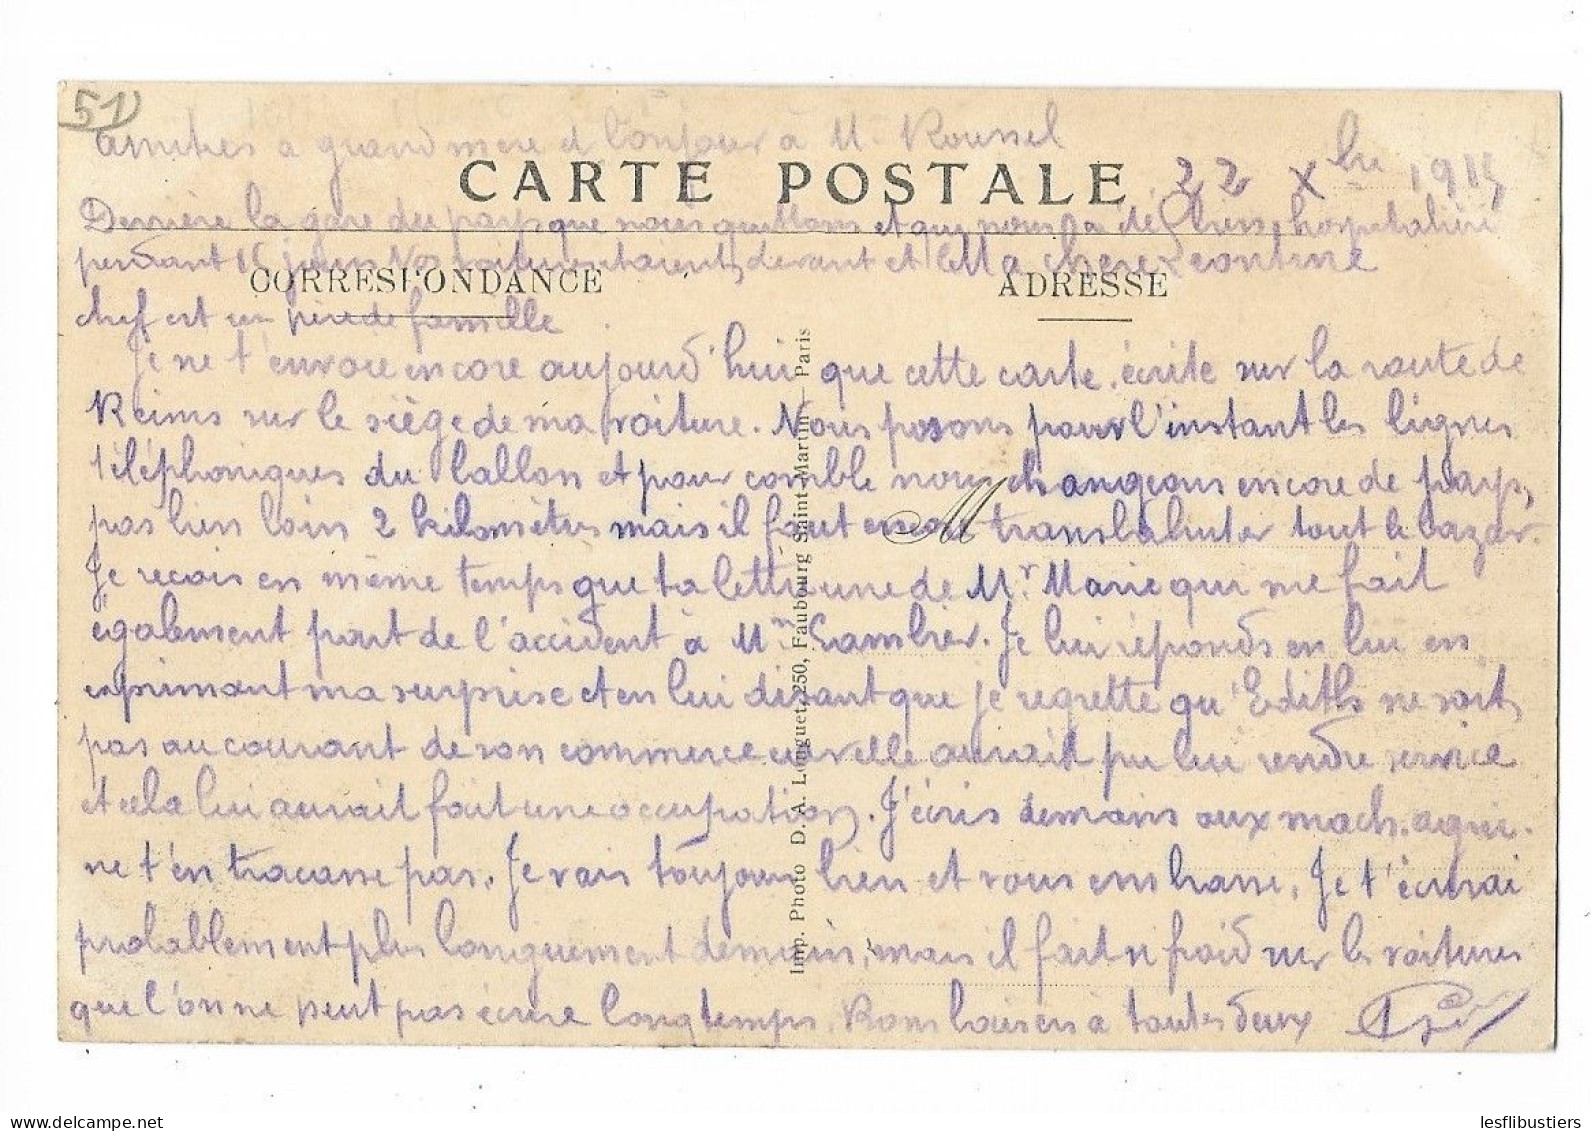 51)
amitiés a grand mere et bonjour à Mme Roussel
CARTE POSTALE
22 Xbre 1915
Derrière la gare du pays que nous quittons et qui nous a été très hospitalière
pendant 15 jours Nos voitures étaient devant et le
Ma chere Leontine
CORRESPONDANCE
ADRESSE
chef est un père de famille
Je ne t'envoie encore aujourd'hui que cette carte écrite sur la route de
Reims sur le siège de ma voiture. Nous posons pour l'instant les lignes
téléphoniques du ballon et pour comble nous changeons encore de pays,
pas bien loin 2 kilomètres mais il faut encore transbahuter tout le bazar.
M
Je recois en même temps que ta lettre une de Mr Marie qui me fait
également part de l'accident à Mme Cambier. Je lui réponds en lui en
exprimant ma surprise et en lui disant que je regrette qu'Edith ne soit
pas au courant de son commerce car elle aurait pu lui rendre service
et cela lui aurait fait une occupation. J'écris demain aux mach. agri.
ne t'en tracasse pas. Je vais toujours bien et vous embrasse. Je t'écrirai
probablement plus longuement demain, mais il fait si froid sur les voitures
que l'on ne peut pas écrire longtemps. Bons baisers à toutes deux
Imp. Photo D. A. Longuet, 250, Faubourg Saint-Martin - Paris
lesflibustiers